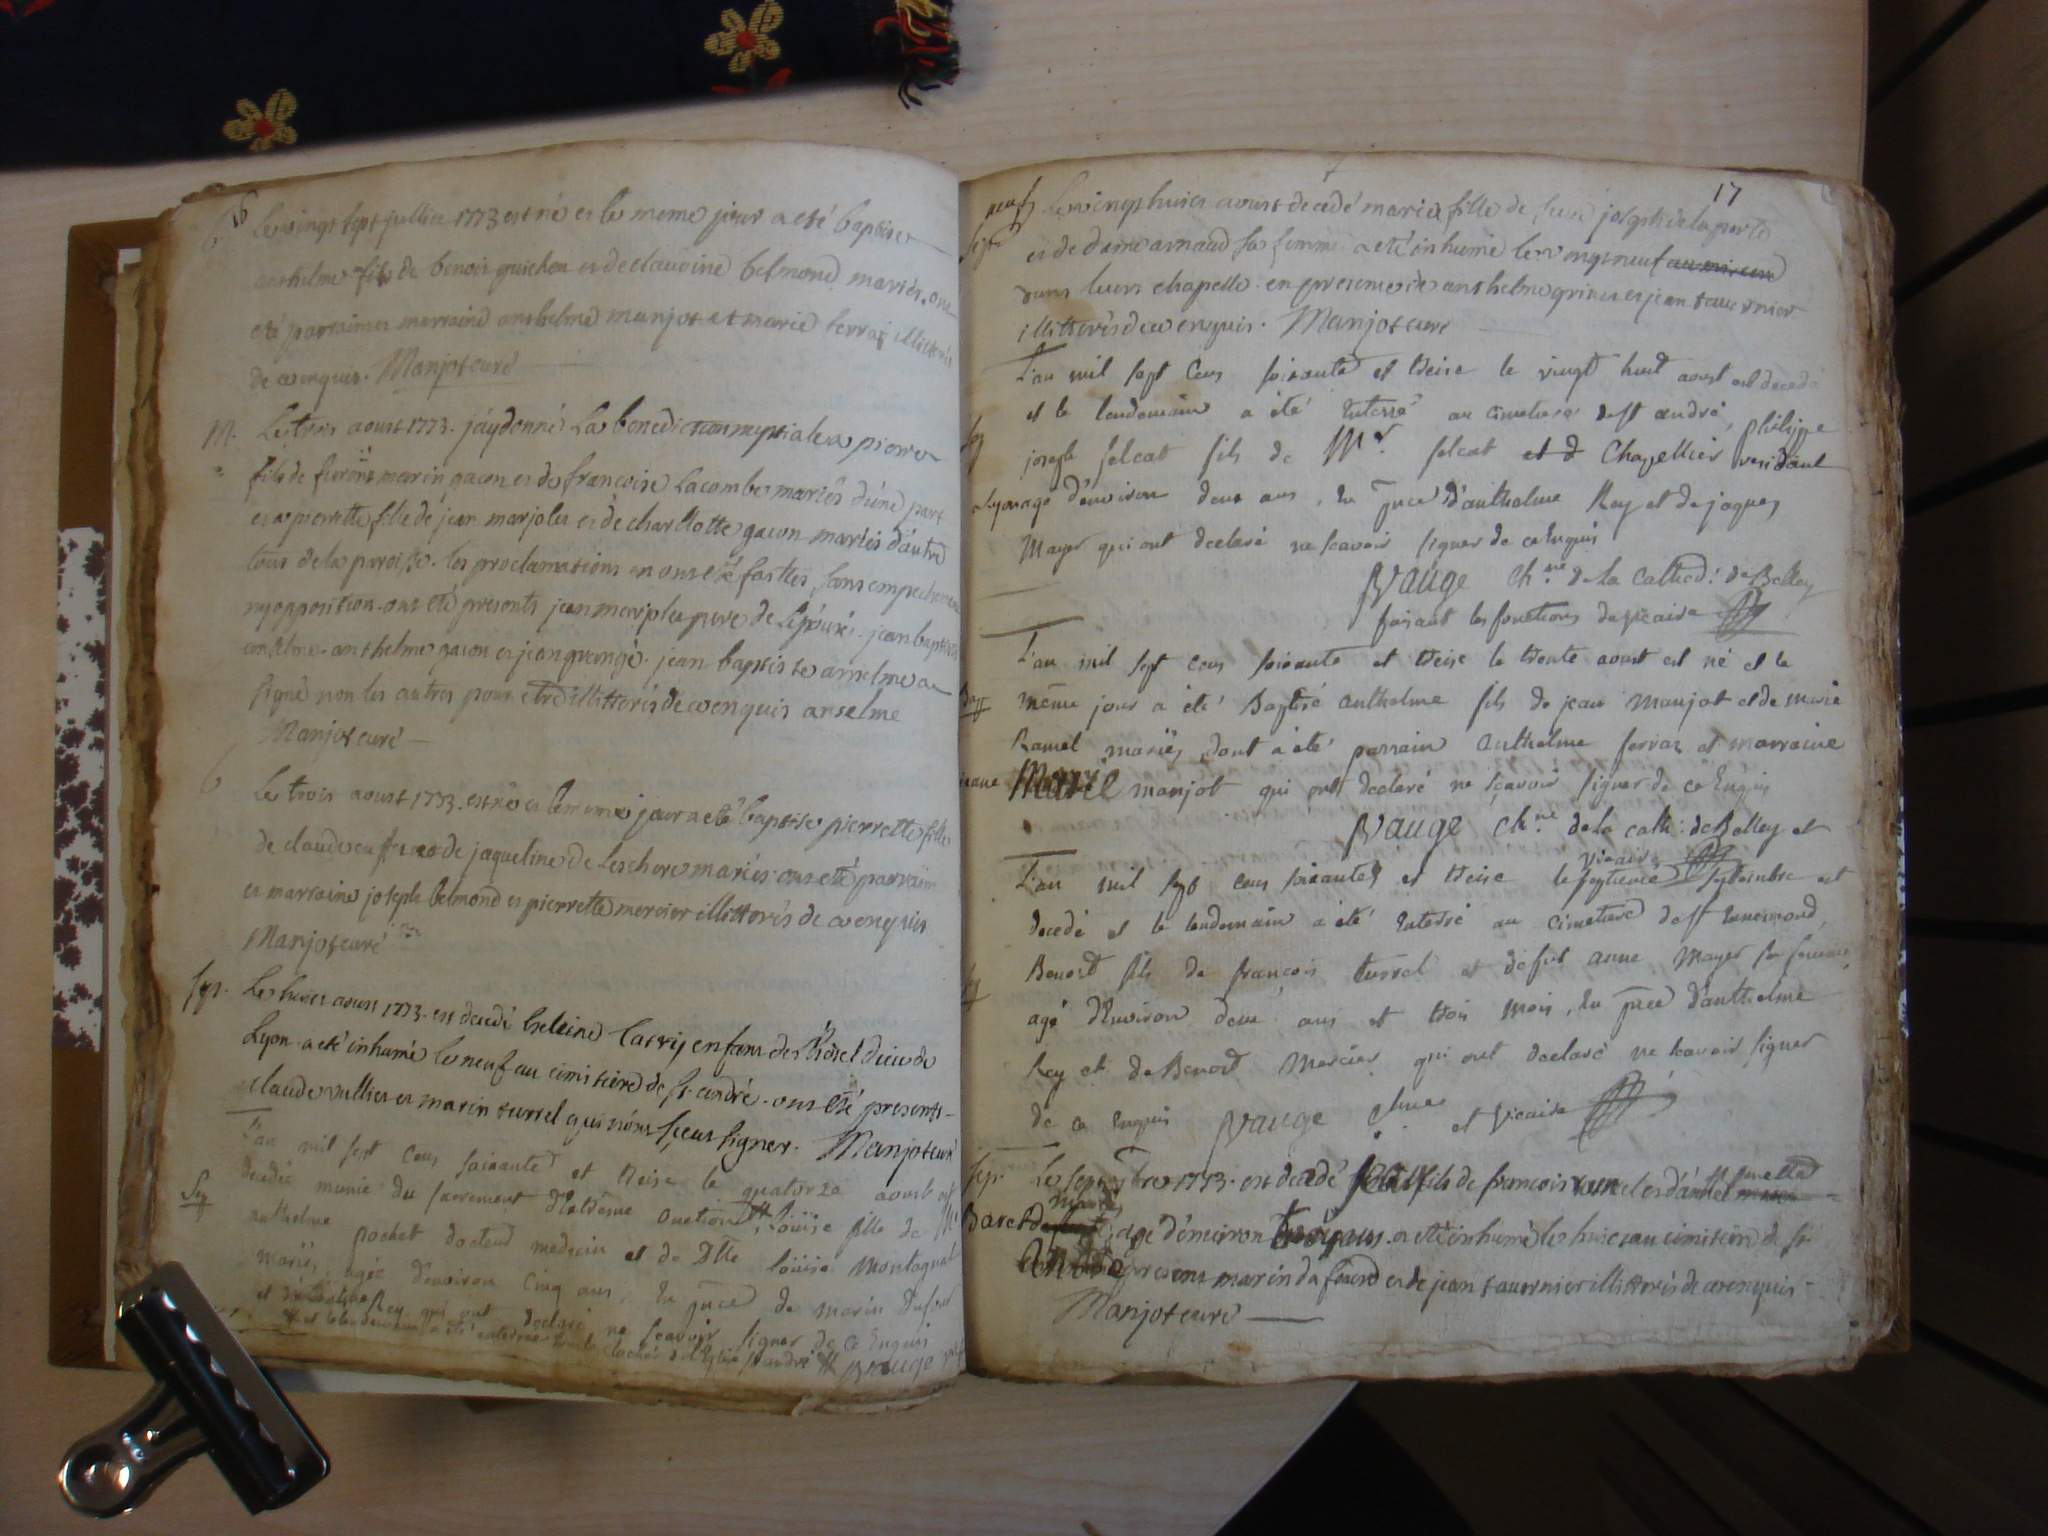 16
b
Le vingt sept juillier 1773 est né et le meme jour a eté baptise
anthelme fils de benois guichon et de claudine belmond mariés. ont
eté parrain et marraine anthelme manjot et marie ferraz illitterés
de ce enquis. Manjot curé
M. Le trois aoust 1773. j'ay donné La benediction nuptiale a pierre
fils de marin gacon et de francoise Lacombe mariés d'une part
et a pierrette fille de jean marjolet et de charllotte gacon mariés d'autre
tous de la paroisse. les proclamations en ont eté faittes, sans empechement
ny opposition. ont eté presents jean marjolet pere de L'epouse. jean baptiste
anselme. anthelme gacon et jean jean baptiste anselme a
signé non les autres pour etre illitterés de ce enquis anselme
Manjot curé
b
Le trois aoust 1773. est né et le meme jour a eté baptise pierrette fille
de claude et de jaqueline de Leschere mariés. ont eté parrain
et marraine joseph belmond et pierrette mercier illitterés de ce enquis
Manjot curé
sep. Le huict aoust 1773. est decedé heleine enfant de L'hotel dieu de
Lyon. a eté inhumé le neuf au cimistiere de st. andré. ont eté presents
claude vullier et marin turrel qui n'ont sceu signer. Manjot curé
L'an mil sept cens soixante et treise le quatorze aoust est
Sep
decedée munie du sacrement d'Extrême onction # Loüise fille de Mr
anthelme pochet docteur medecin et de Dlle loüise Montagnat
mariés, agée d'environ cinq ans, en pnce de marin dufour
et d'anthelme Rey qui ont declaré ne scavoir signer de ce Enquis
# et le lendemain a été enterrée sous le clocher de l'Eglise st andré # Vauge
17
neuf
sept
Le vingt huict aoust decedé marie fille de feu joseph delaporte
et de dame arnaud sa femme a eté inhumé le vingt neuf
dans leurs chapelle. en presence de anthelme et jean tavernier
illitterés de ce enquis. Manjot curé
L'an mil sept cens soixante et treise le vingt huit aoust est decedé
et le lendemain a été Enterré au cimetiere de st andré, philippe
Sep
joseph felcat fils de Mr. felcat et d Chapellier residant
a lyon agé d'environ deux ans, En pnce d'anthelme Rey et de jaques
Mayer qui ont declaré ne scavoir signer de ce Enquis
Vauge chne de la Cathed: de Belley
faisant les fonctions de vicaire
L'an mil sept cens soixante et treise le trente aoust est né et le
Bap
même jour a été Baptisé anthelme fils de jean Manjot et de marie
Ramel mariés, dont a été parrain anthelme ferraz et marraine
jeane Marie manjot qui ont declaré ne sçavoir signer de ce Enquis
Vauge chne de la cath: de Belley et
vicaire
L'an mil sept cens soixante et treise le septieme septembre est
decedé et le lendemain a été Enterré au cimetiere de st
Sep
Benoit fils de françois turrel et de fut anne Mayer sa femme,
agé d'Environ deux ans et trois mois, En pnce d'anthelme
Rey et de Benoit Mercier qui ont declaré ne scavoir signer
de ce Enquis Vauge chne et vicaire
sep. Le sept 1773. est decedé fils de francois turrel et d'anthel
agé d'environ trois ans. a eté inhumé le huict au cimistiere de st
André presens marin du four et de jean tavernier illitterés de ce enquis
Manjot curé